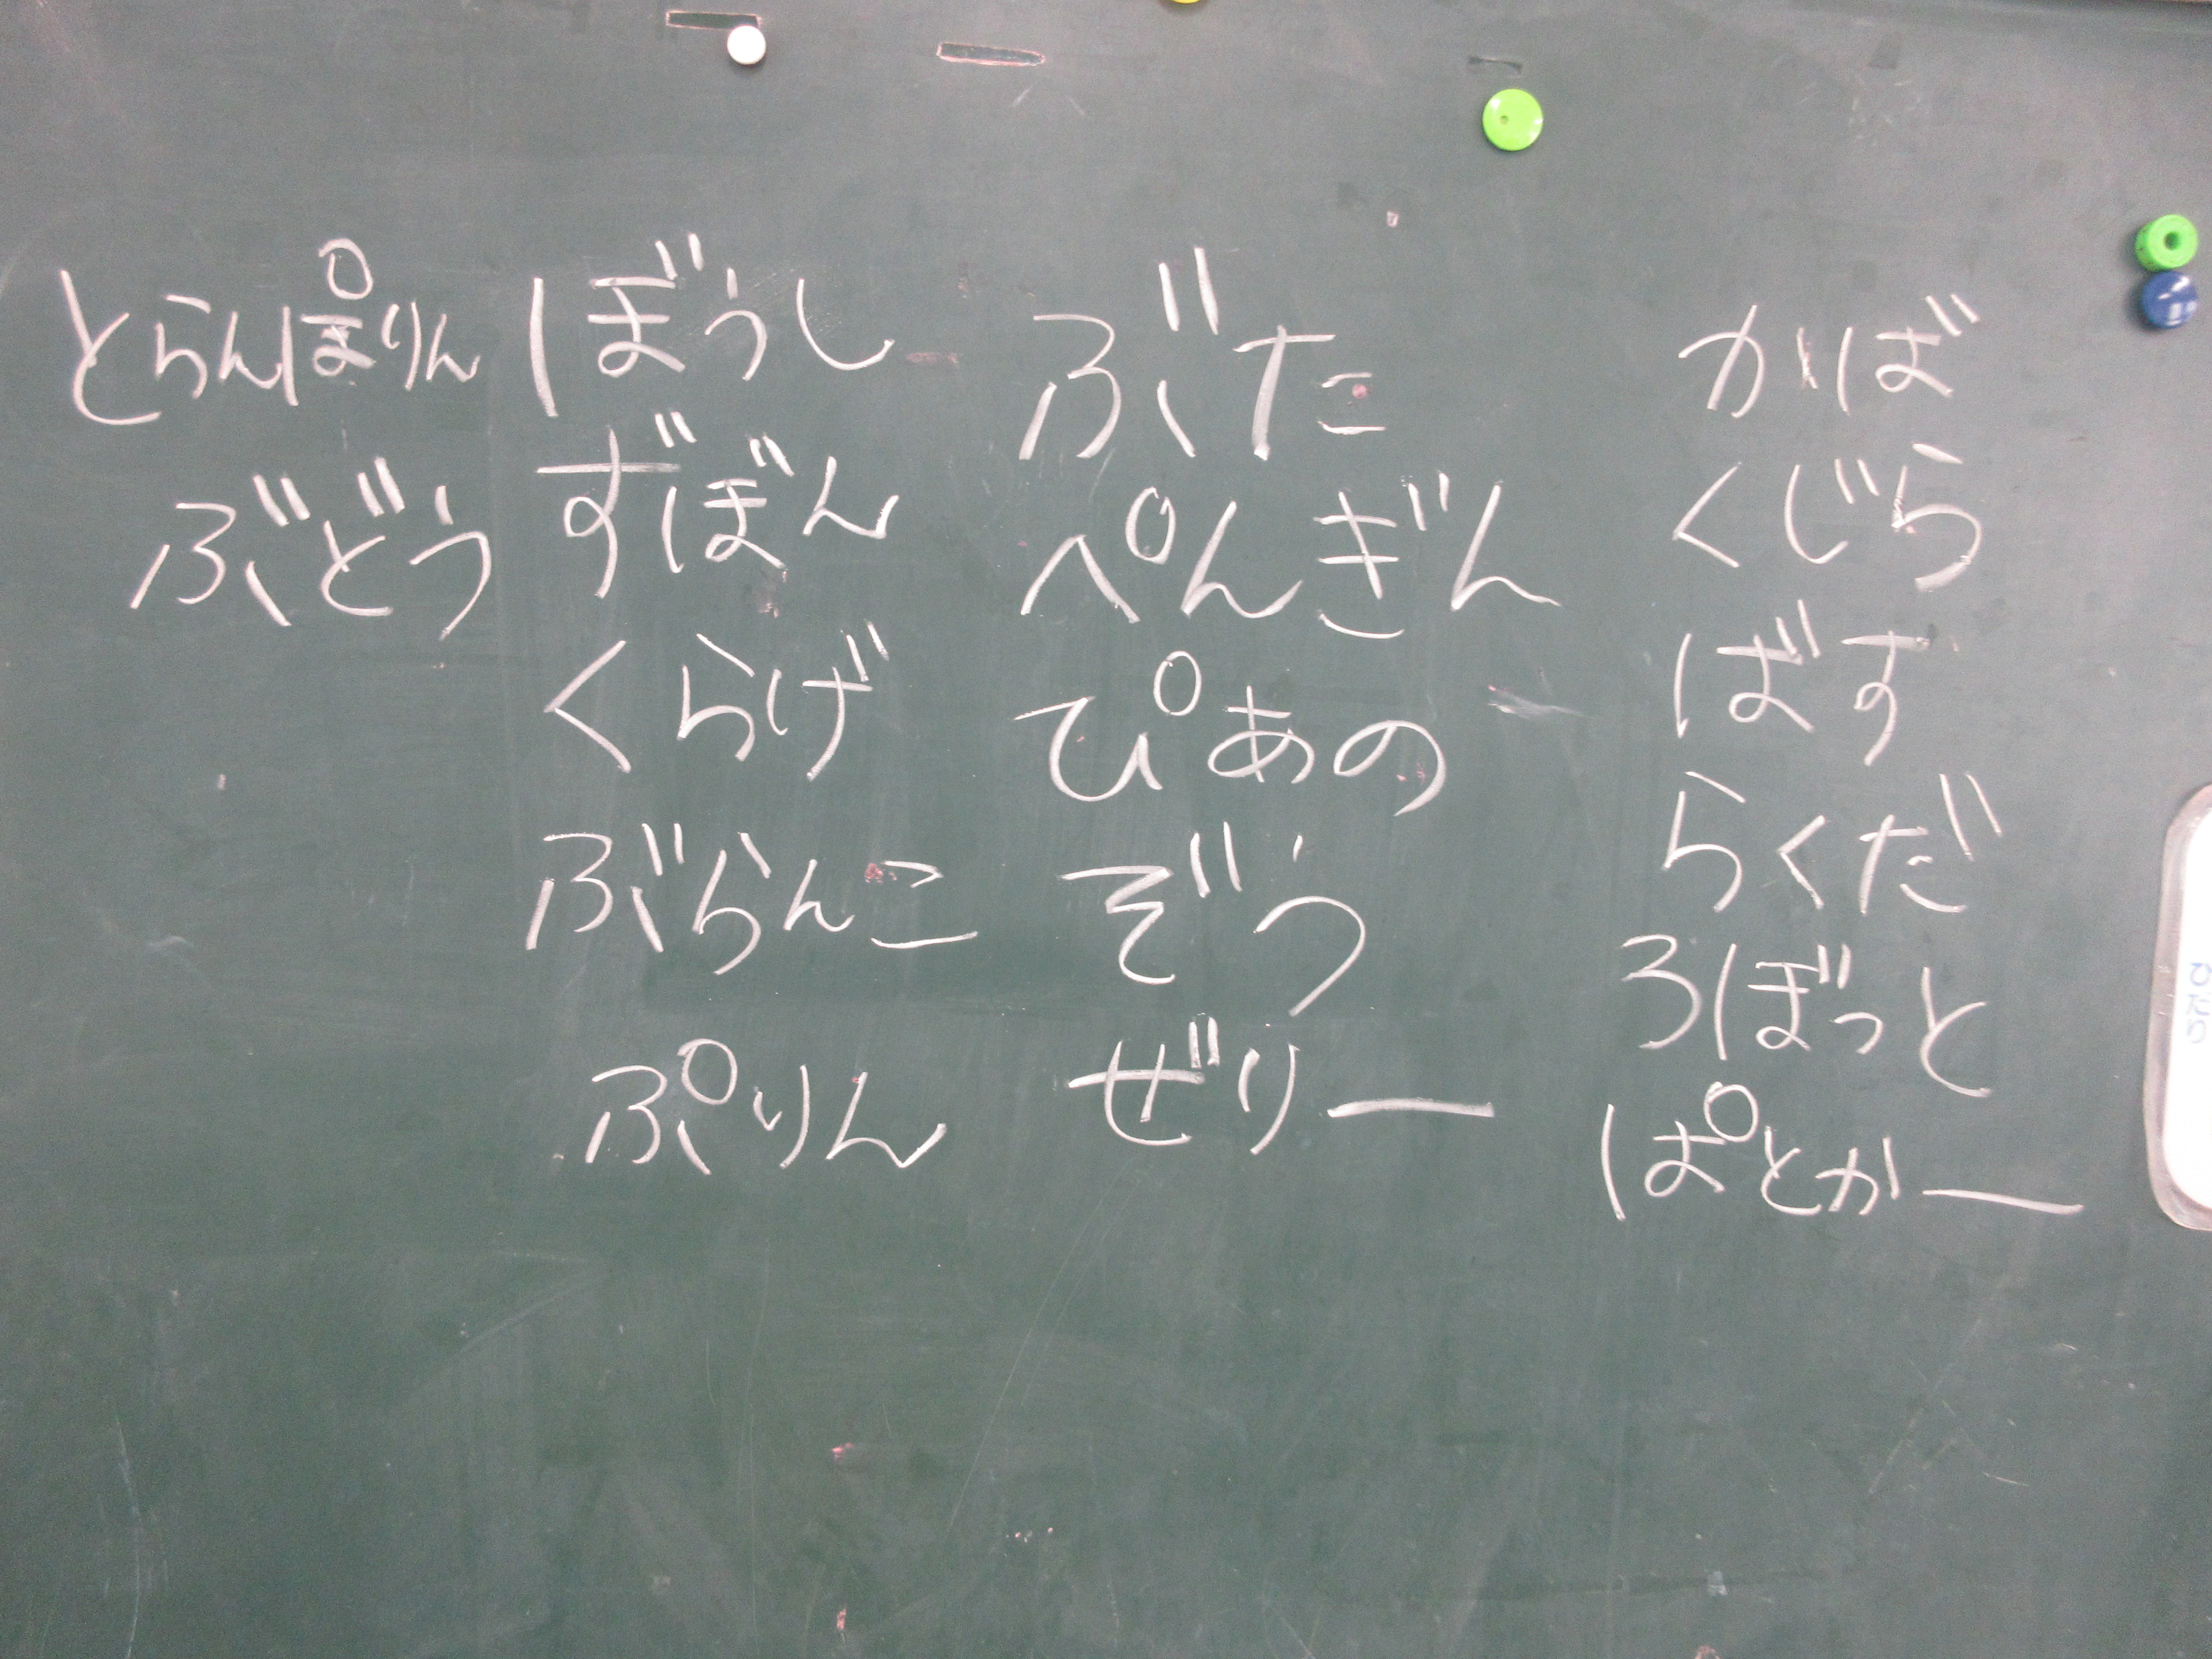 とらんぽりん
ぶどう
ぼうし
ずぼん
くらげ
ぶらんこ
ぷりん
ぶた
ぺんぎん
ぴあの
ぞう
ぜりー
かば
くじら
ばす
らくだ
ろぼっと
ぱとかー